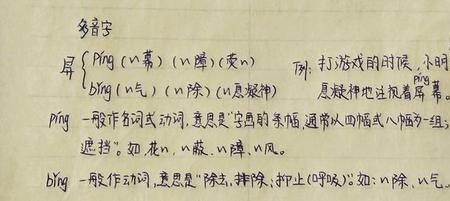 多音字
屏 { píng (n幕) (n障) (荧n)
bǐng (n气) (n除) (n息凝神)
例: 打游戏的时候, 小明
息凝神地注视着屏(píng)幕。
píng 一般作名词或动词, 意思是"字画的条幅, 通常以四幅或八幅为一组;
遮挡"。如 花n、n蔽、n障、n风。
bǐng 一般作动词, 意思是"除去, 排除; 抑止(呼吸)"。如: n除、n气。